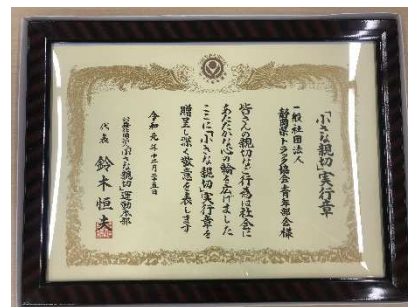 「小さな親切」実行章
一般社団法人
静岡県トラック協会青年部会様
皆さんの親切な行為は社会に
あたたかな心の輪を広げました
ここに「小さな親切」実行章を
贈呈し深く敬意を表します
令和元年十二月二十五日
公益社団法人「小さな親切」運動本部
代表 鈴木恒夫